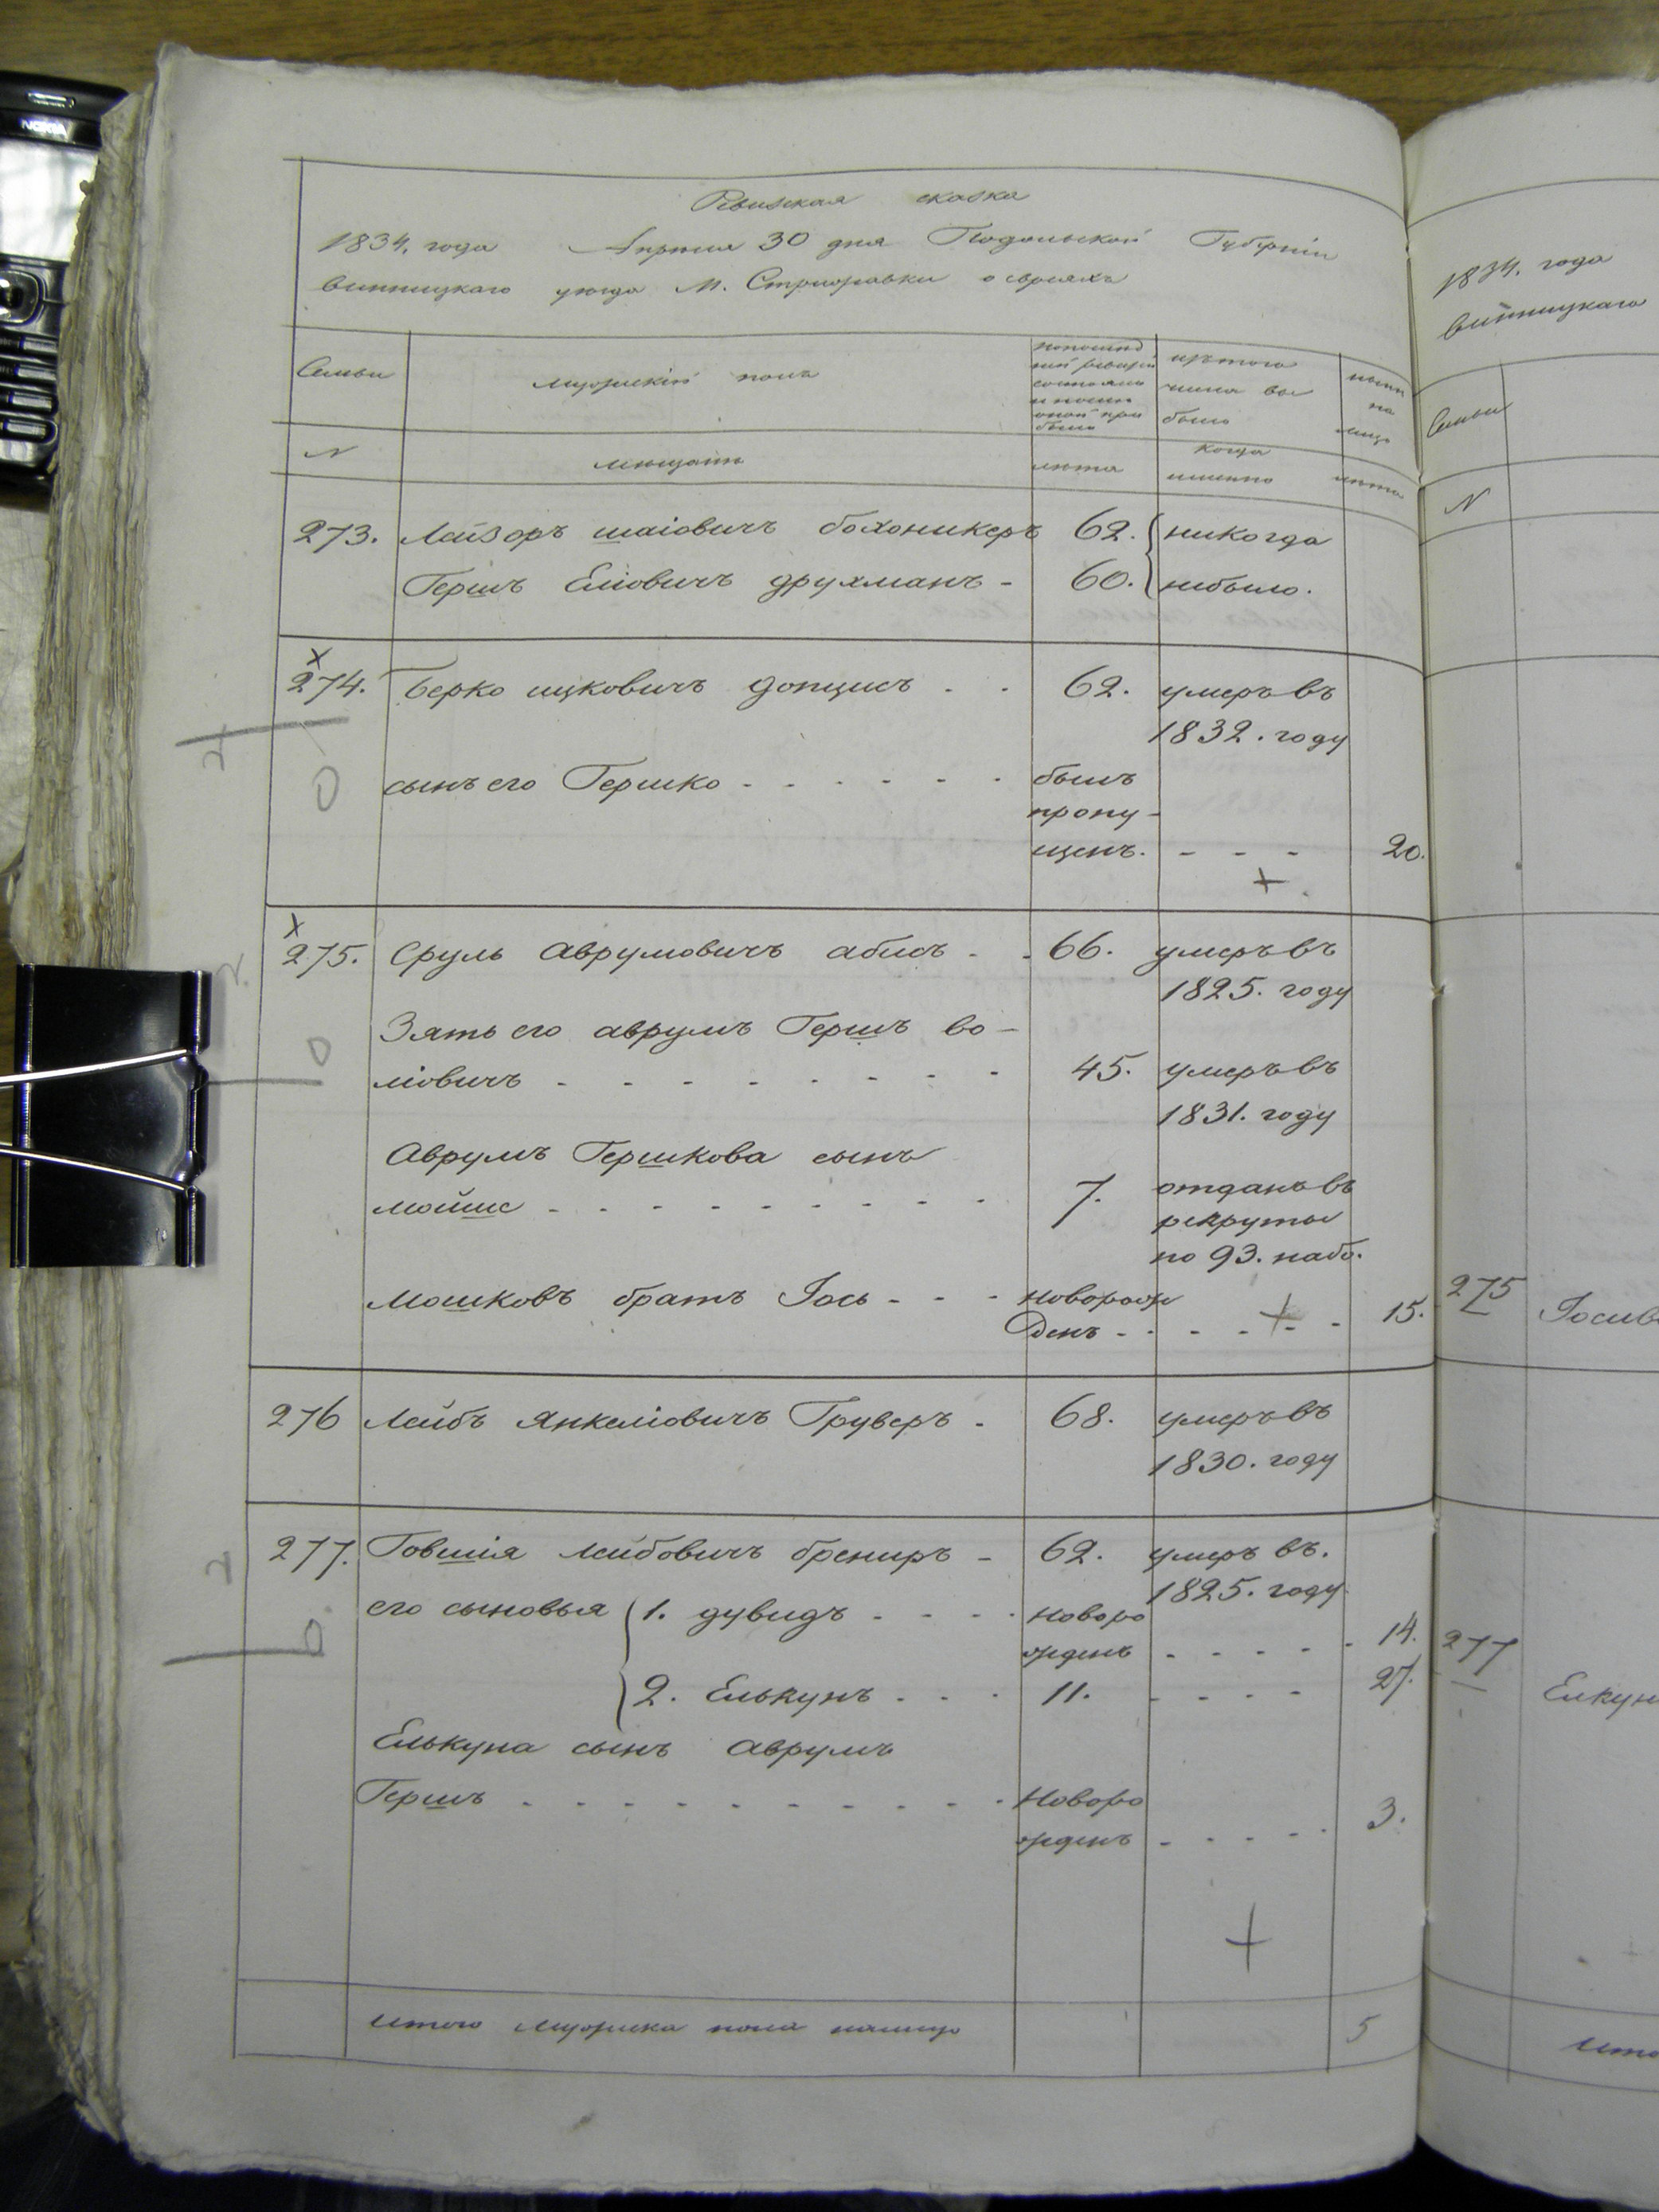 NOKIA
Ревизская сказка
1834. года Апреля 30 дня Подольской Губернiи
винницкаго уезда М. Стрижавки о евреяхъ
Семьи
мужескiй полъ
изъ того
числа вы
было
ныне
на
лицо
N
мещане
лета
когда
именно
лета
273. Лейзоръ шаiовичъ болоникеръ 62. никогда
Гершъ Елiовичъ друхманъ - 60. небыло.
274. Берко ицковичъ допцисъ - - 62. умеръ въ
1832. году
сынъ его Гершко - - - - - - былъ
пропу-
щенъ. - - - 20.
275. Сруль Аврумовичъ абисъ - - 66. умеръ въ
1825. году
Зять его аврумъ Гершъ во-
лiовичъ - - - - - - - - - 45. умеръ въ
1831. году
Аврумъ Гершкова сынъ
мойше - - - - - - - - - 7. отданъ въ
рекруты
по 93. набо.
Мошковъ братъ Iось - - - новорож
денъ - - - - - - 15.
276 Лейбъ Янкелiовичъ Груверъ - 68. умеръ въ
1830. году
277. Говшiя Лейбовичъ брениръ - 62. умеръ въ.
1825. году
его сыновья 1. дувидъ - - - - новоро
жденъ - - - - - 14.
2. Елькунъ - - - 11. - - - - 27.
Елькуна сынъ Аврумъ
Гершъ - - - - - - - - - - новоро
жденъ - - - - - 3.
итого мужеска пола налицо 5
1834. года
винницкаго
Семьи
N
275
277